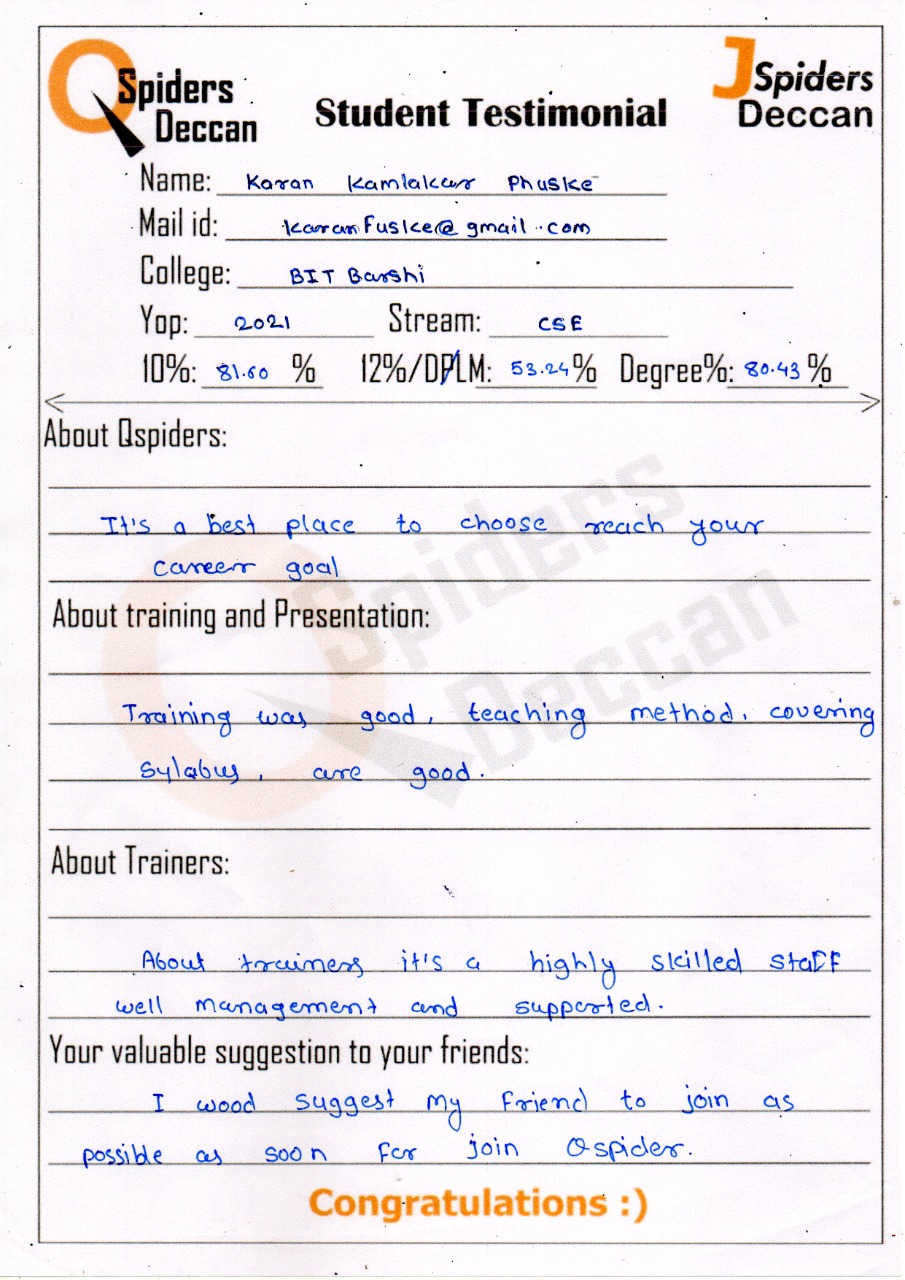 QSpiders
Deccan
Student Testimonial
JSpiders
Deccan
Name: Karan Kamlakar Phuske
Mail id: karanfuske@gmail.com
College: BIT Barshi
Yop: 2021 Stream: CSE
10%: 81.60 % 12%/DPLM: 53.24% Degree%: 80.43 %
About Qspiders:
It's a best place to choose reach your
career goal
About training and Presentation:
Training was good, teaching method, covering
sylabus, are good.
About Trainers:
About trainers it's a highly skilled staff
well management and supported.
Your valuable suggestion to your friends:
I wood suggest my friend to join as
possible as soon for join Qspider.
Congratulations :)
QSpiders
Deccan